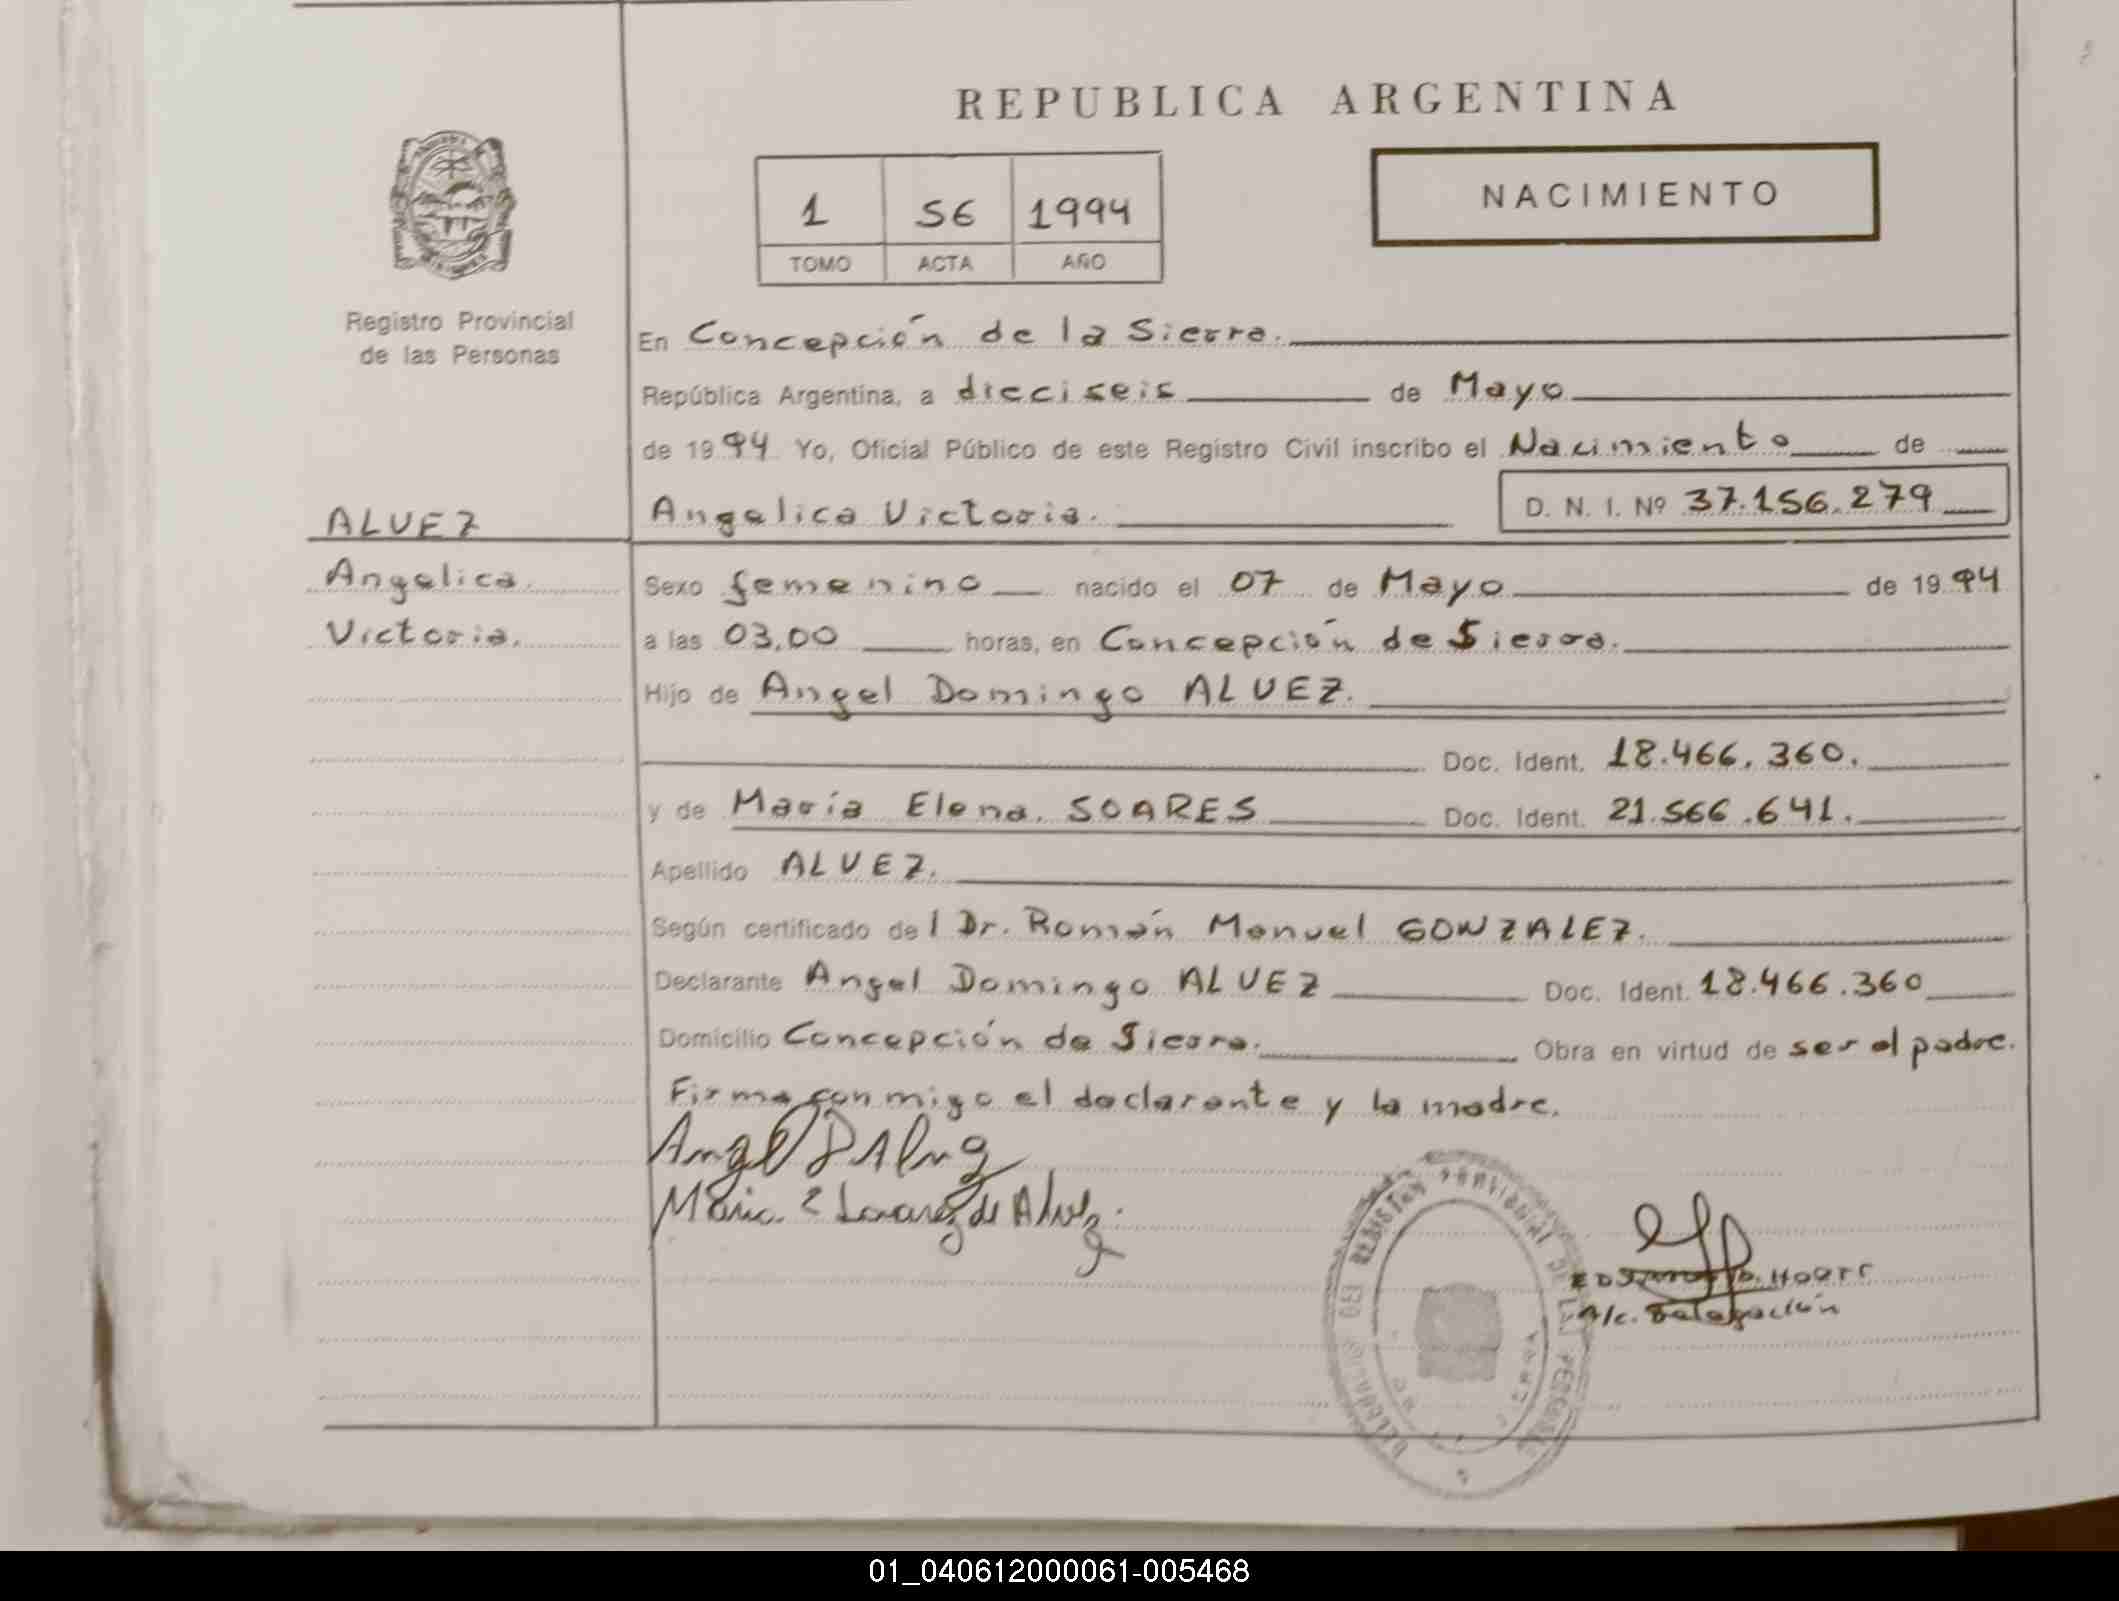 REPUBLICA ARGENTINA
NACIMIENTO
1 56 1994
TOMO ACTA AÑO
Registro Provincial
de las Personas
En Concepción de la Sierra.
República Argentina, a dieciseis de Mayo
de 1994 Yo, Oficial Público de este Registro Civil inscribo el Nacimiento de
Angelica Victoria. D. N. I. Nº 37.156.279
ALVEZ
Angelica
Victoria.
Sexo femenino nacido el 07 de Mayo de 1994
a las 03,00 horas, en Concepción de Sierra.
Hijo de Angel Domingo ALVEZ.
Doc. Ident. 18.466.360.
y de María Elena SOARES Doc. Ident. 21.566.641.
Apellido ALVEZ.
Según certificado del Dr. Román Manuel GONZALEZ.
Declarante Angel Domingo ALVEZ Doc. Ident. 18.466.360
Domicilio Concepción de Sierra. Obra en virtud de ser el padre.
Firma conmigo el declarante y la madre.
Angel D Alvez
Maria E de Alvez.
REGISTRO PROVINCIAL DE LAS PERSONAS
A/c. Delegación
01_040612000061-005468